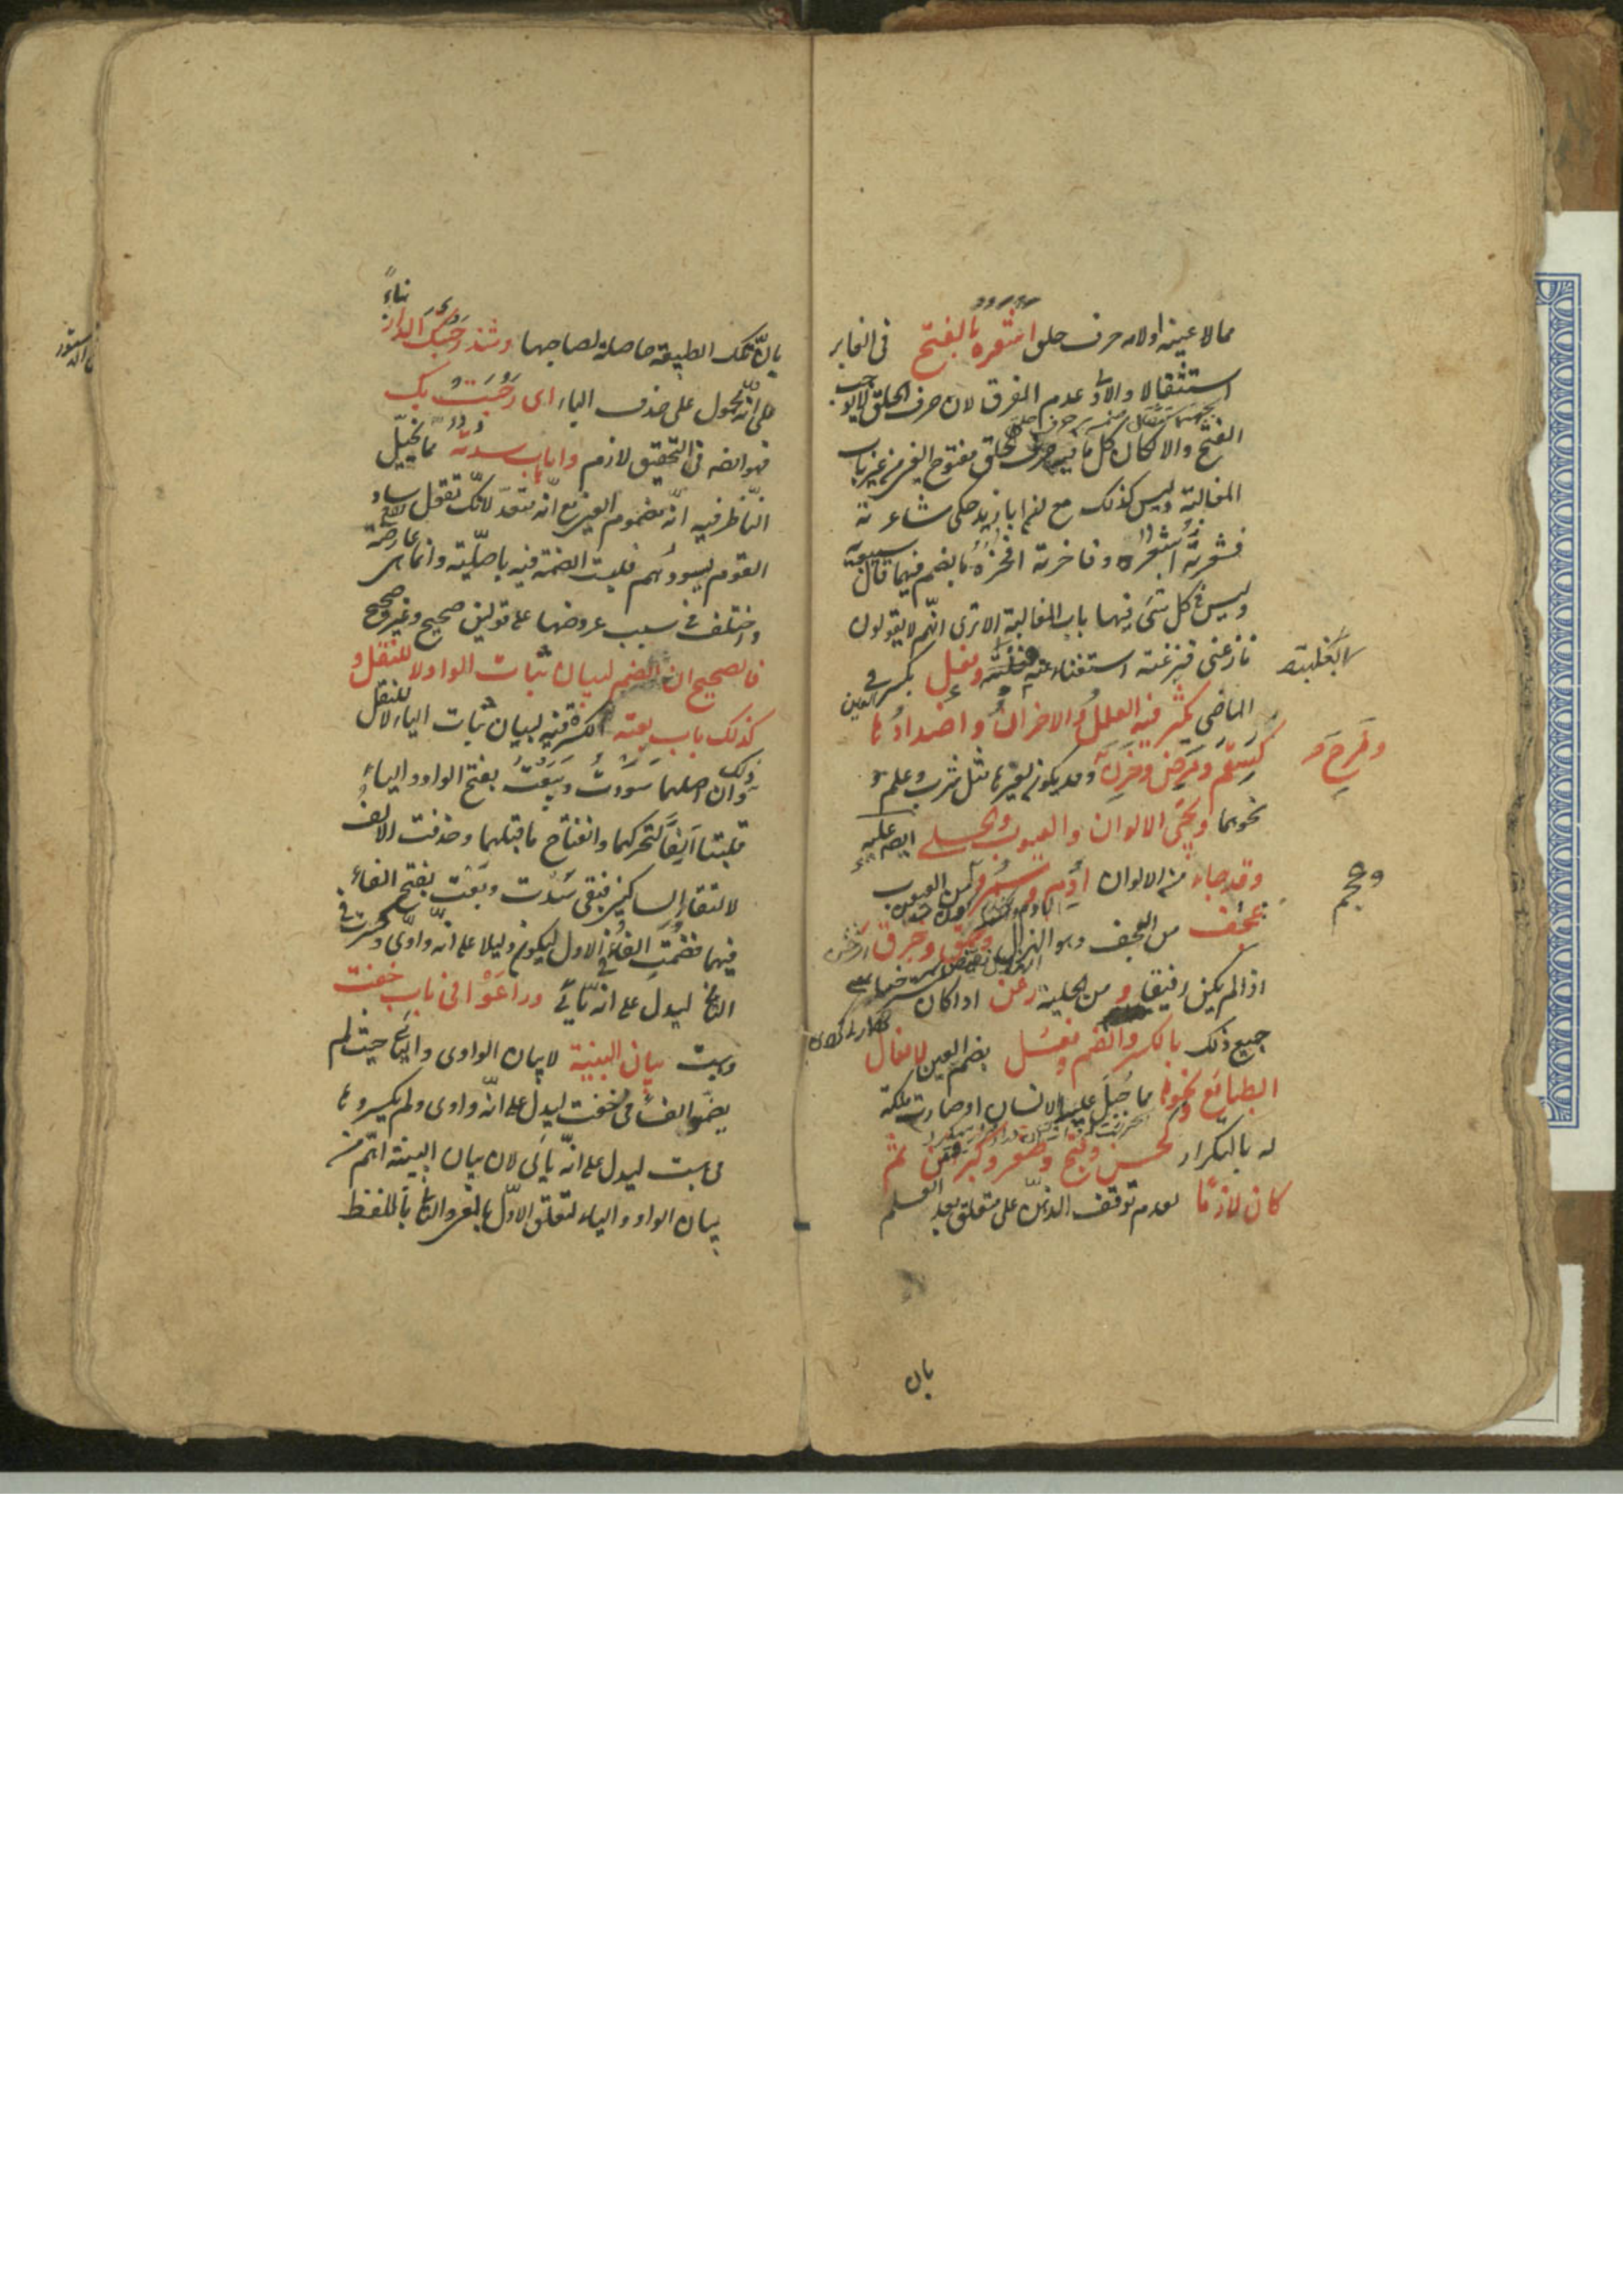 مما لا عينه اولامه حرف حلق اشعره بالفتح فى الغابر
استثقالا والاولى عدم الفرق لان حرف الحلق لايوجب
الفتح والا لكان كل ما فيه حرف الحلق مفتوح العين من غير باب
المغالبة وليس كذلك مع ان ابا زيد حكى شاعرته
فشعرته اشعره وفاخرته افخره بالضم فيهما قال سيبويه
وليس فى كل شئ فيها باب المغالبة الا ترى انهم لا يقولون
نازعنى فنزعته استغناء عنه بغلبته وفعل بكسر العين فى
الماضى يكثر فيه العلل والاحزان واضدادها
كسقم ومرض وحزن وقد يكون لغيرها مثل شرب وعلم و
وفرح
نحوهما ويجئ الالوان والعيوب والحلى عليه
وقد جاء من الالوان ادم وسمر ومن العيوب
وعجم
عجف من العجف وهو الهزال وحمق وخرق
اذا لم يكن رفيقا و من الحلية رعن اذا كان
جميع ذلك بالكسر والضم وفعل بضم العين لافعال
الطبائع ونحوها مما جبل عليه الانسان او صارت ملكة
له بالتكرار كحسن وقبح وصغر وكبر فمن ثم
كان لازما لعدم توقف الذهن على متعلق بعد العلم
بان
بان تلك الطبيعة حاصلة لصاحبها وشذ رحبتك الدار بناءً
على انه محمول على حذف الباء اى رحبت بك
فهو ايضا فى التحقيق لازم واما باب سدته مما يخيل
الناظر فيه انه مضموم العين مع انه متعد لانك تقول ساد
القوم يسودهم فليست الضمة فيه باصلية وانما هى عارضة
واختلف فى سبب عروضها على قولين صحيح وغير صحيح
فالصحيح ان الضم لبيان بنات الواو لا للنقل و
كذلك باب بعته الكسرة فيه لبيان بنات الياء لا للنقل
وذلك ان اصلهما سودت وبيعت بفتح الواو والياء
قلبتا الفا لتحركهما وانفتاح ما قبلهما وحذفت الالف
لالتقاء الساكنين فبقى سدت وبعت بفتح الفاء
فيهما فضمت الفاء فى الاول ليكون دليلا على انه واوى وكسرت فى
الثانى ليدل على انه يائى وراعوا فى باب خفت
وهبت بيان البنية لا بيان الواوى واليائى حيث لم
يضموا الفاء فى خفت ليدل على انه واوى ولم يكسروها
فى هبت ليدل على انه يائى لان بيان البنية اهم من
بيان الواو والياء لتعلق الاول بالمعنى والثانى باللفظ